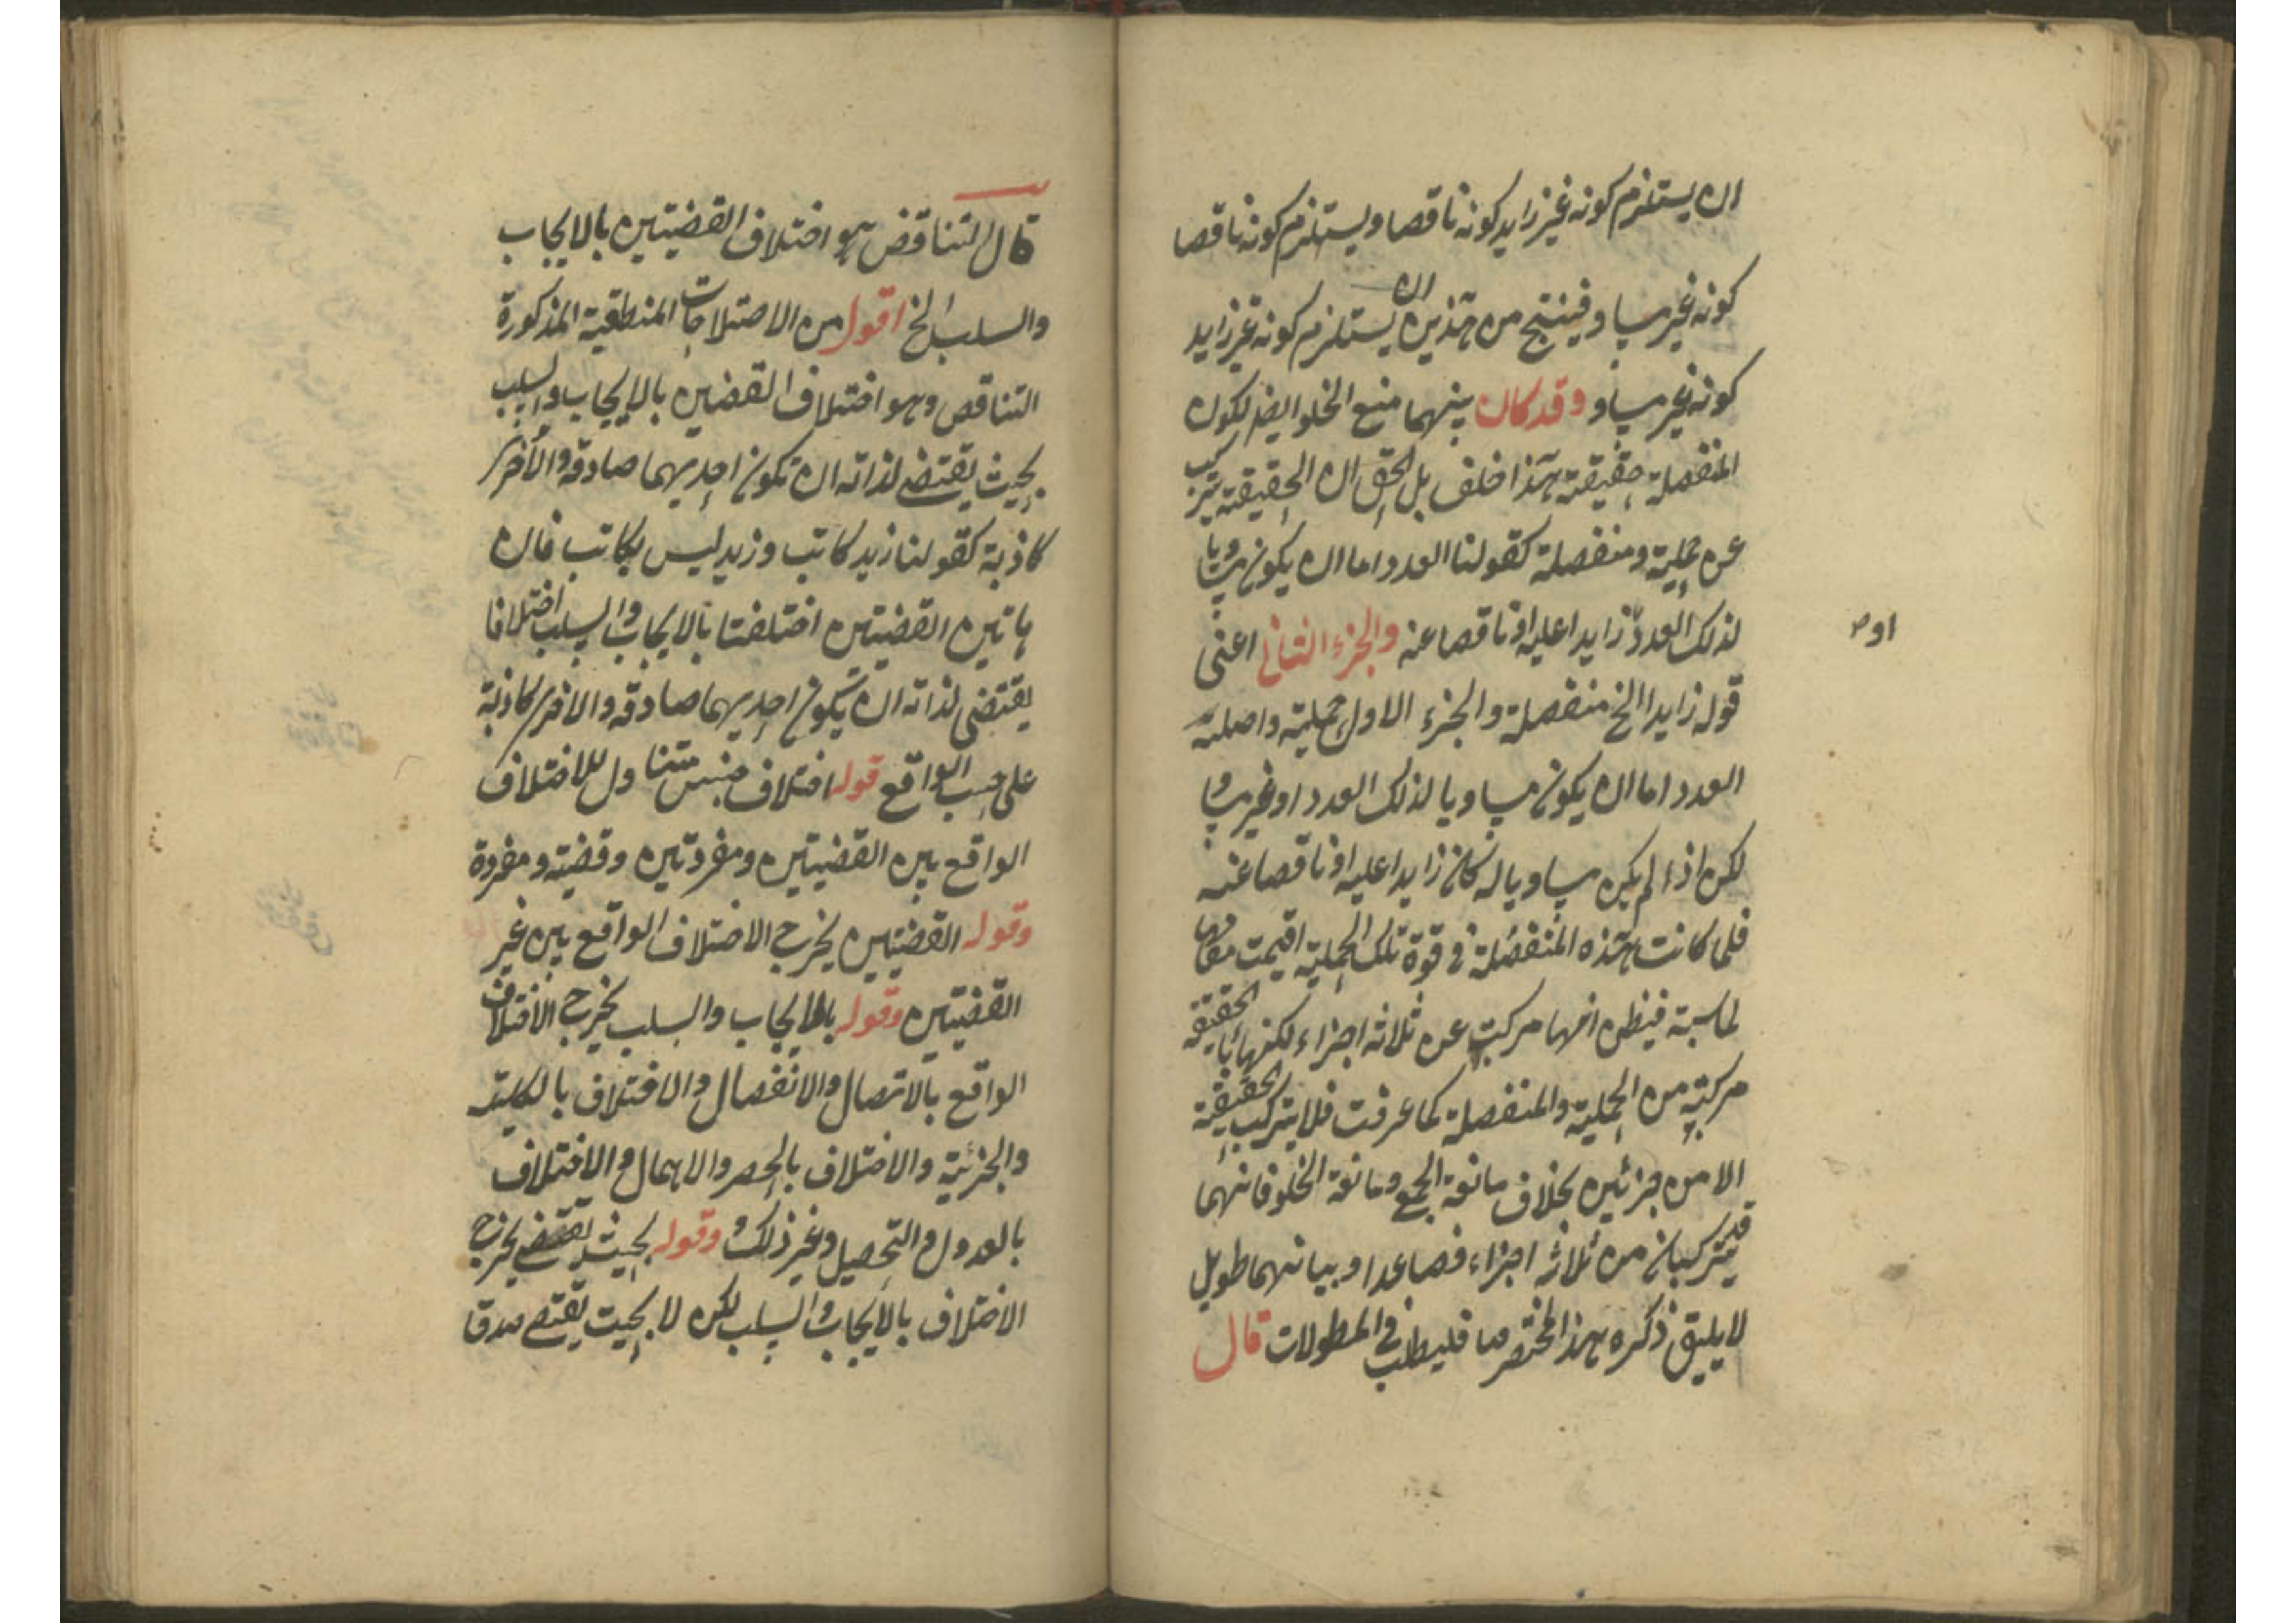 ان يستلزم كونه غير زايد كونه ناقصا ويستلزم كونه ناقصا
كونه غير مساو فينتج من هذين ان يستلزم كونه غير زايد
كونه غير مساو وقد كان بينهما منع الخلو ايضا لكون
المنفصلة حقيقية هذا خلف بل الحق ان الحقيقية تتركب
عن حملية ومنفصلة كقولنا العدد اما ان يكون مساويا
لذلك العدد زايدا عليه او ناقصا عنه والجزء الثاني اعنى
او
قوله زايدا الخ منفصلة والجزء الاول حملية واصله
العدد اما ان يكون مساويا لذلك العدد او غير مساو
لكن اذا لم يكن مساويا له كان زايدا عليه او ناقصا عنه
فلما كانت هذه المنفصلة في قوة تلك الحملية اقيمت مقامها
فيظن انها مركبة عن ثلاثة اجزاء لكنها الحقيقة
مركبة من الحملية والمنفصلة كما عرفت فلا يتركب الحقيقية
الا من جزئين بخلاف مانعة الجمع ومانعة الخلو فانهما
قد يتركبان من ثلاثة اجزاء فصاعدا وبيانهما طويل
لا يليق ذكره بهذا المختصر فليطلب في المطولات قال
قال التناقض هو اختلاف القضيتين بالايجاب
والسلب الخ اقول من الاصتلاحات المنطقية المذكورة
التناقص وهو اختلاف القضين بالايجاب والسلب
بحيث يقتضى لذاته ان تكون احديهما صادقة والأخرى
كاذبة كقولنا زيد كاتب وزيد ليس بكاتب فان
هاتين القضيتين اختلفتا بالايجاب والسلب اختلافا
يقتضى لذاته ان يكون احديهما صادقة والاخرى كاذبة
على حسب الواقع قوله اختلاف جنس متناول للاختلاف
الواقع بين القضيتين ومفردتين وقضية ومفردة
وقوله القضيتين يخرج الاختلاف الواقع بين غير
القضيتين وقوله بالايجاب والسلب يخرج الاختلاف
الواقع بالاتصال والانفصال والاختلاف بالكلية
والجزئية والاختلاف بالحصر والاهمال والاختلاف
بالعدول والتحصيل وغير ذلك وقوله بحيث يقتضى يخرج
الاختلاف بالايجاب والسلب لكن لا بحيث يقتضى صدق